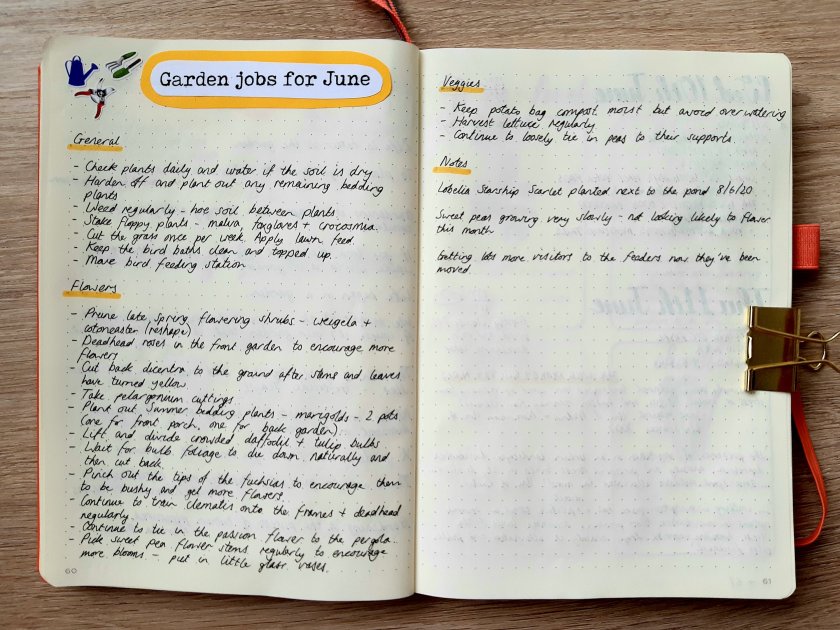 Garden jobs for June
General
- Check plants daily and water if the soil is dry
- Harden off and plant out any remaining bedding
plants
- Weed regularly - hoe soil between plants
- Stake floppy plants - malva, foxgloves + crocosmia.
- Cut the grass once per week. Apply lawn feed.
- Keep the bird baths clean and topped up.
- Move bird feeding station
Flowers
- Prune late spring flowering shrubs - weigela +
cotoneaster (reshape)
- Deadhead roses in the front garden to encourage more
flowers
- Cut back dicentra to the ground after stems and leaves
have turned yellow
- Take pelargonium cuttings
- Plant out summer bedding plants - marigolds - 2 pots
(one for front porch, one for back garden)
- Lift and divide crowded daffodil + tulip bulbs
- Wait for bulb foliage to die down naturally and
then cut back
- Pinch out the tips of the fuchsias to encourage them
to be bushy and get more flowers.
- Continue to train clematis onto the frames + deadhead
regularly
- Continue to tie in the passion flower to the pergola.
- Pick sweet pea flower stems regularly to encourage
more blooms. - put in little glass vases.
60
Veggies
- Keep potato bag compost moist but avoid overwatering
- Harvest lettuce regularly
- Continue to loosely tie in peas to their supports.
Notes
Lobelia Starship Scarlet planted next to the pond 8/6/20
Sweet peas growing very slowly - not looking likely to flower
this month
Getting lots more visitors to the feeders now they've been
moved.
61